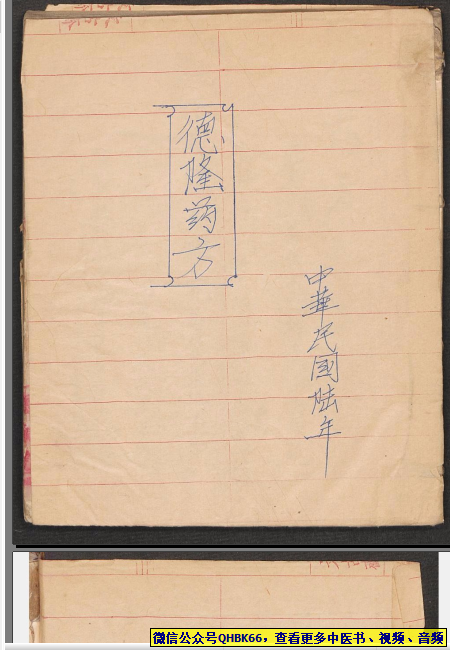 德隆药方
中華民國陆年
微信公众号QHBK66，查看更多中医书、视频、音频